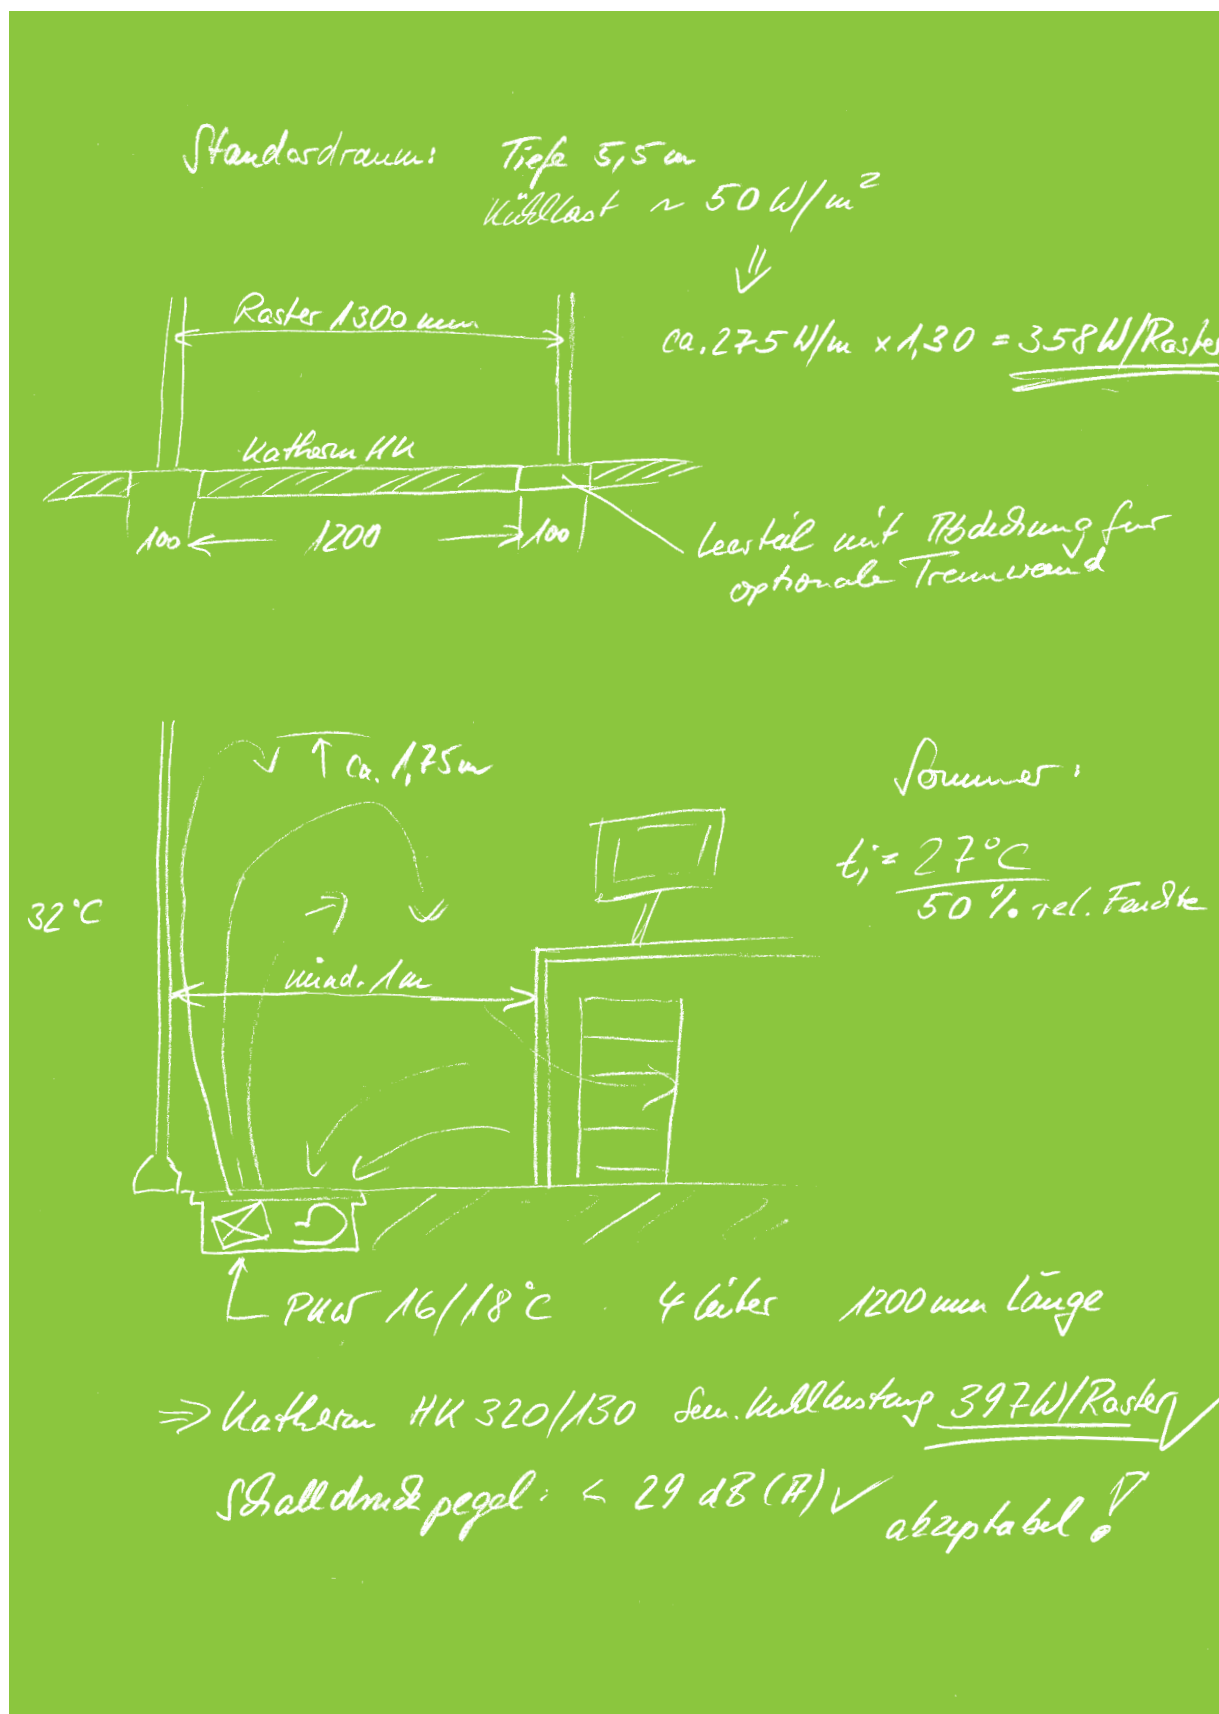 Standardraum: Tiefe 5,5 m
Kühllast ~ 50 W/m²
⇓
Raster 1300 mm
ca. 275 W/m × 1,30 = 358 W/Raster
Katherm HK
100 1200 100
Leerteil mit Abdeckung für
optionale Trennwand
ca. 1,75 m
Sommer:
ti = 27°C
50 % rel. Feuchte
32°C
mind. 1 m
PKW 16/18°C 4 Leiter 1200 mm Länge
⇒ Katherm HK 320/130 Sen. Kühlleistung 397 W/Raster ✓
Schalldruckpegel: < 29 dB (A) ✓ akzeptabel!